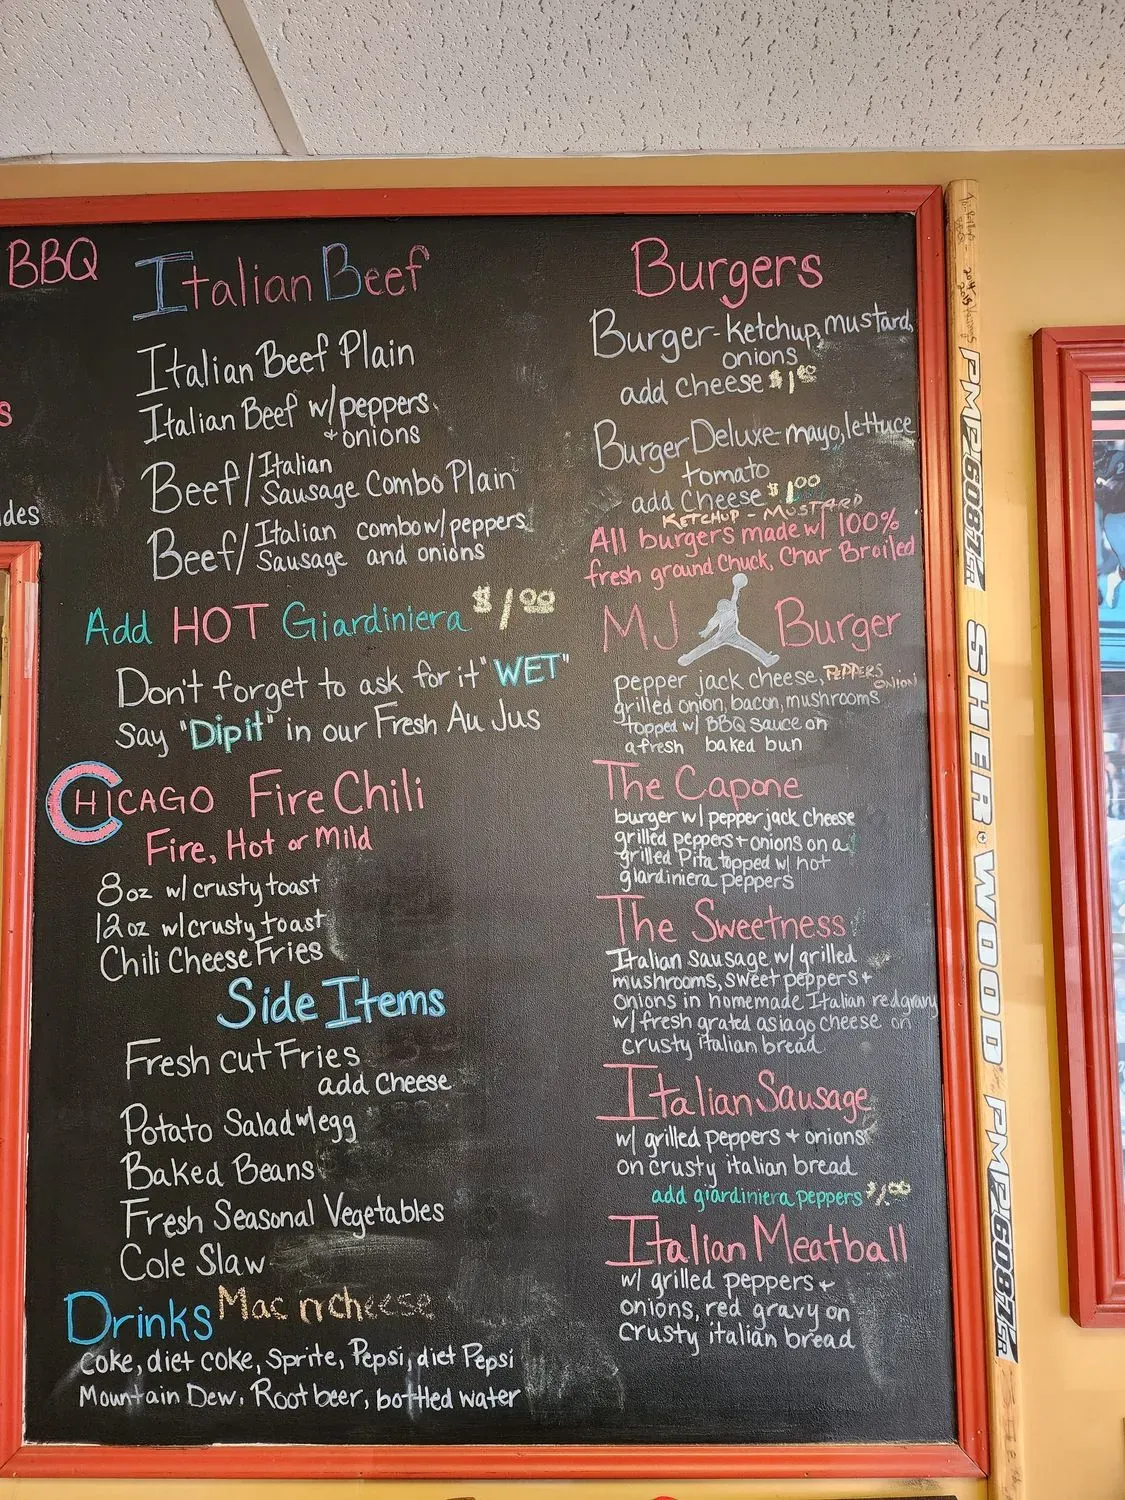 BBQ
s
des
Italian Beef
Italian Beef Plain
Italian Beef w/peppers
+ onions
Beef/Italian Sausage Combo Plain
Beef/Italian Sausage combo w/peppers and onions
Add HOT Giardiniera $1.00
Don't forget to ask for it "WET"
say "Dip it" in our Fresh Au Jus
CHICAGO Fire Chili
Fire, Hot or Mild
8oz w/crusty toast
12oz w/crusty toast
Chili Cheese Fries
Side Items
Fresh cut Fries
add cheese
Potato Salad w/egg
Baked Beans
Fresh Seasonal Vegetables
Cole Slaw
Mac n cheese
Drinks
coke, diet coke, Sprite, Pepsi, diet Pepsi
Mountain Dew, Root beer, bottled water
Burgers
Burger - ketchup, mustard,
onions
add cheese $1.00
Burger Deluxe - mayo, lettuce
tomato
add cheese $1.00
KETCHUP - MUSTARD
All burgers made w/ 100%
fresh ground Chuck, Char Broiled
MJ Burger
pepper jack cheese, PEPPERS
ONION
grilled onion, bacon, mushrooms
topped w/ BBQ sauce on
a fresh baked bun
The Capone
burger w/ pepper jack cheese
grilled peppers + onions on a
grilled Pita topped w/ hot
giardiniera peppers
The Sweetness
Italian sausage w/ grilled
mushrooms, sweet peppers +
onions in homemade Italian red gravy
w/ fresh grated asiago cheese on
crusty italian bread
Italian Sausage
w/ grilled peppers + onions
on crusty italian bread
add giardiniera peppers $1.00
Italian Meatball
w/ grilled peppers +
onions, red gravy on
crusty italian bread
SHER-WOOD